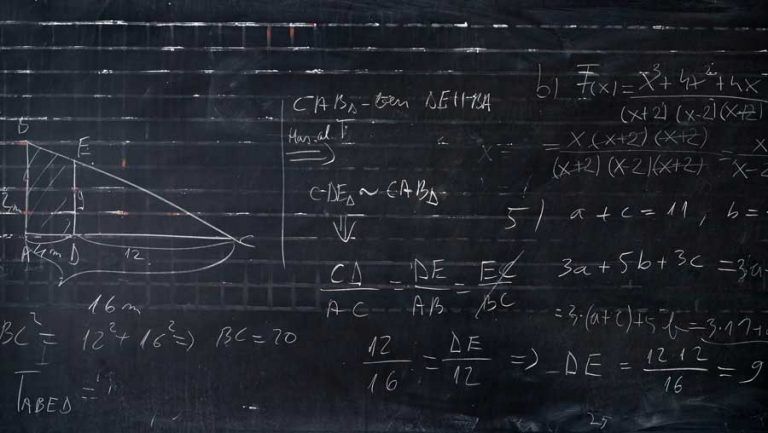 B
E
9
A 4m D 12 C
16m
BC² = 12² + 16² => BC = 20
T_ABED =
CAB△-ben DE||BA
=>
CDE△ ~ CAB△
⇓
CD/AC = DE/AB = EC/BC
12/16 = DE/12 => DE = 12·12/16 = 9
b) F(x) = x³ + 4x² + 4x / (x+2)(x-2)(x+2)
x = = x·(x+2)(x+2) / (x+2)(x-2)(x+2) = x / x-2
5) a + c = 11, b =
3a + 5b + 3c = 3a
= 3·(a+c) + 5b = 3·11 +